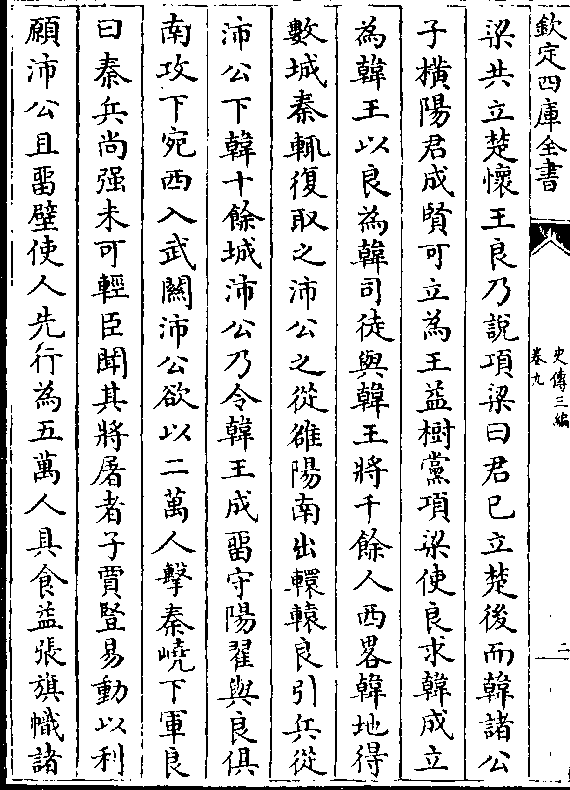 欽定四庫全書
史傳三編
卷九
二
梁共立楚懷王良乃說項梁曰君已立楚後而韓諸公
子橫陽君成賢可立為王益樹黨項梁使良求韓成立
為韓王以良為韓司徒與韓王將千餘人西畧韓地得
數城秦輒復取之沛公之從雒陽南出轘轅良引兵從
沛公下韓十餘城沛公乃令韓王成留守陽翟與良俱
南攻下宛西入武關沛公欲以二萬人擊秦嶢下軍良
曰秦兵尚强未可輕臣聞其將屠者子賈豎易動以利
願沛公且留壁使人先行為五萬人具食益張旗幟諸